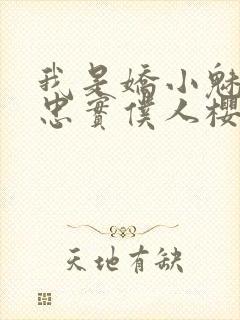 我是嬌小魅
忠實僕人櫻
天地有缺